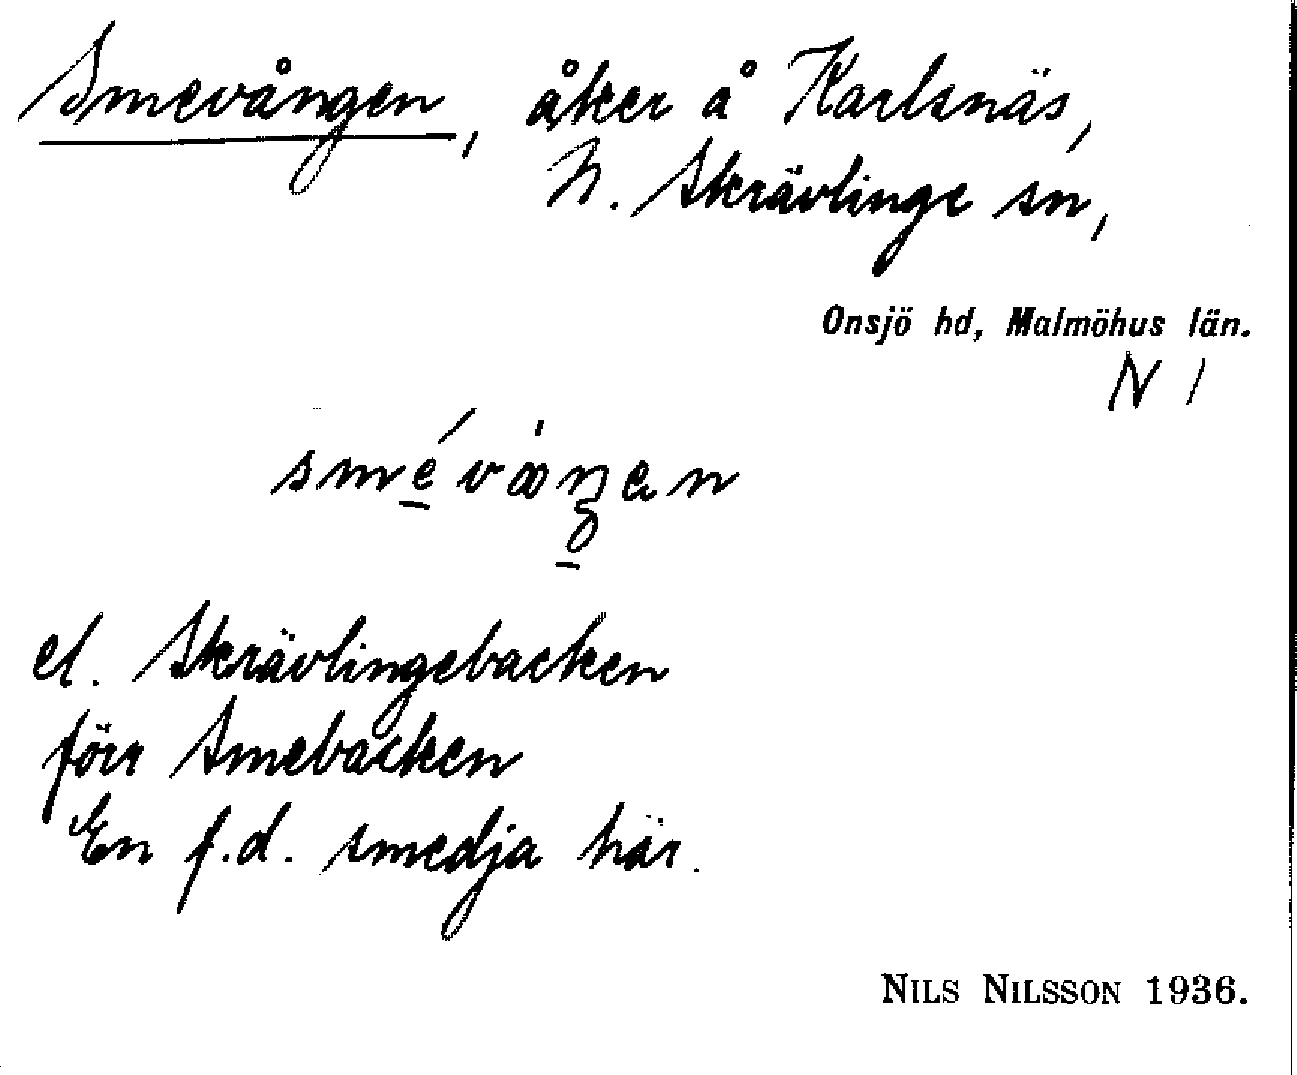 Smevången, åker å Karlsnäs,
N. Skrävlinge sn,
Onsjö hd, Malmöhus län.
N 1
el. Skrävlingebacken
förr Smebacken
En f.d. smedja här.
NILS NILSSON 1936.